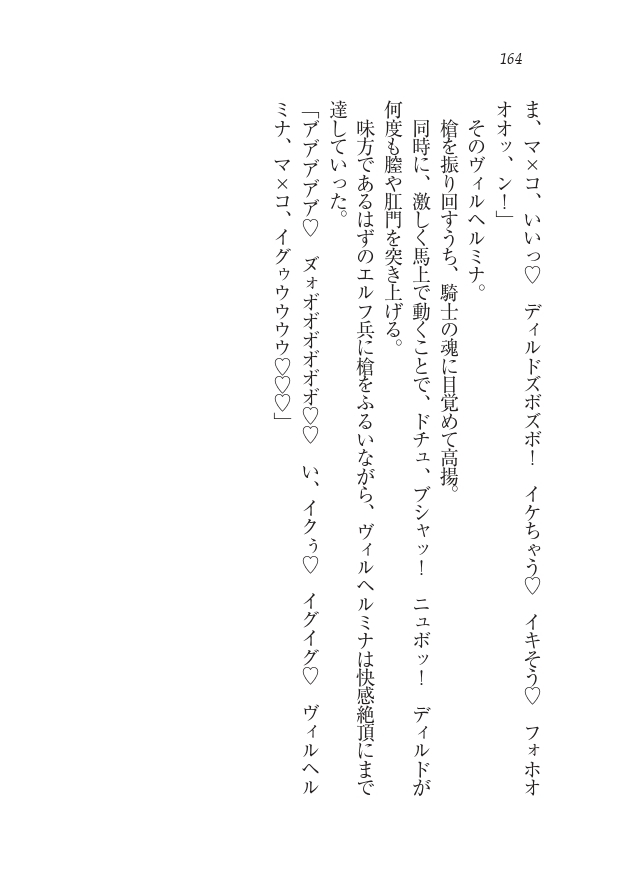 164
ま、マ×コ、いいっ♡　ディルドズボズボ！　イケちゃう♡　イキそう♡　フォホオ
オオッ、ン！」
　そのヴィルヘルミナ。
　槍を振り回すうち、騎士の魂に目覚めて高揚。
　同時に、激しく馬上で動くことで、ドチュ、ブシャッ！　ニュボッ！　ディルドが
何度も膣や肛門を突き上げる。
　味方であるはずのエルフ兵に槍をふるいながら、ヴィルヘルミナは快感絶頂にまで
達していった。
「アアアアア♡　ヌ゛ォオオオオオオ♡♡　い、イクぅ♡　イグイグ♡　ヴィルヘル
ミナ、マ×コ、イグゥウウウウ♡♡♡」